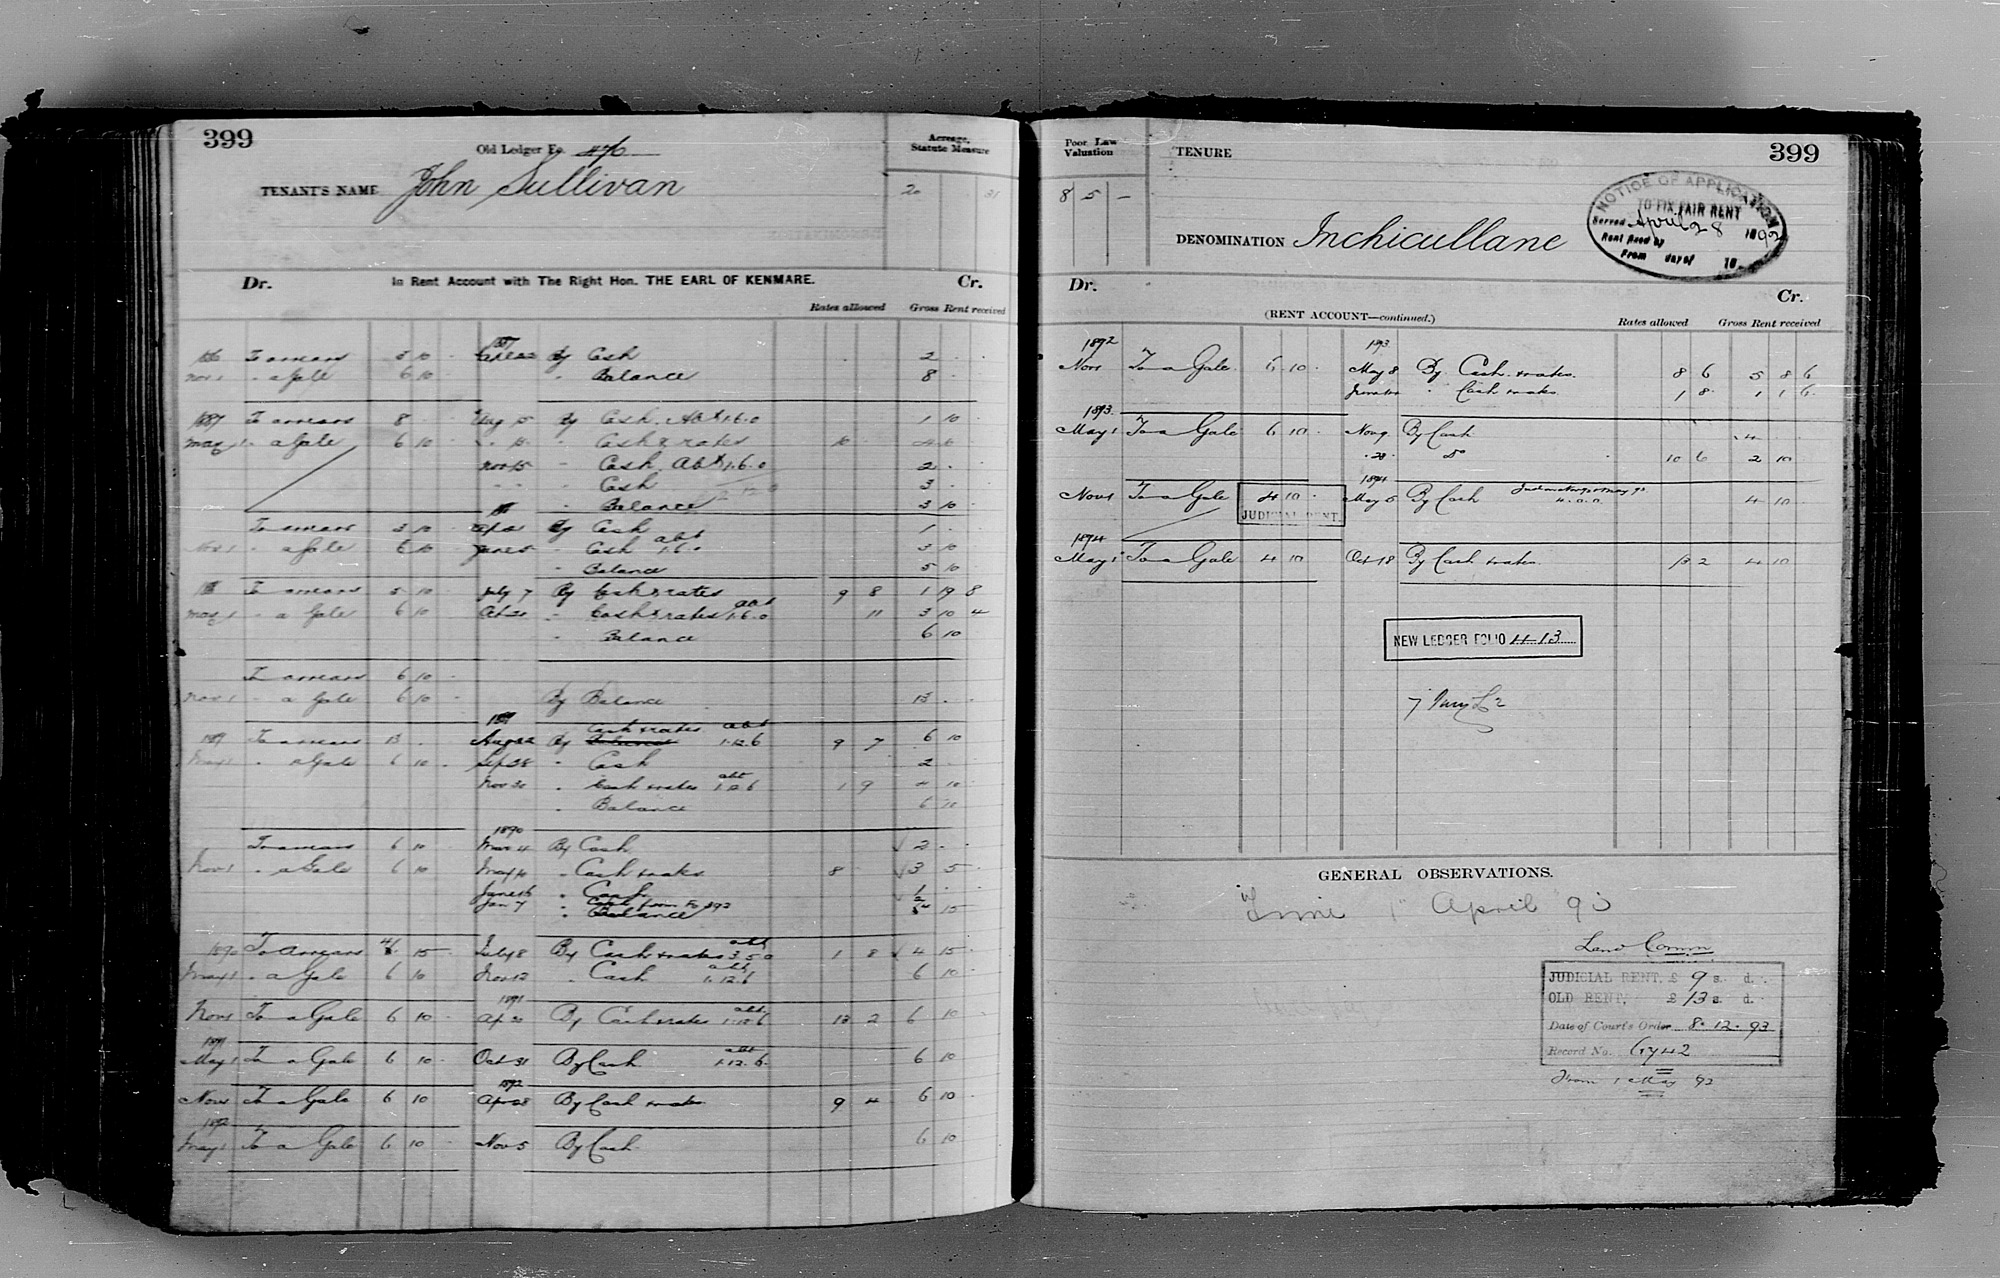 399
Old Ledger Fo. 476
Acreage, Statute Measure
TENANT'S NAME John Sullivan
20 31
Dr. In Rent Account with The Right Hon. THE EARL OF KENMARE. Cr.
Rates allowed Gross Rent received
1887
To arrears 3 10 By Cash 2
Nov 1 " a Gale 6 10 " Balance 8
1887 To arrears 8 Aug 15 By Cash Abt 1.6.0 1 10
May 1 " a Gale 6 10 " " Cash & rates 10
Nov 15 " Cash Abt 1.6.0 2
" " Cash 3
" Balance 3 10
To arrears 3 10 By Cash 1
Nov 1 " a Gale 6 10 June 5 " Cash abt 1.6.0 3 10
" Balance 5 10
To arrears 5 10 July 7 By Cash & rates 9 8 1 19 8
May 1 " a Gale 6 10 Oct 20 " Cash & rates abt 1.6.0 11 3 10 4
" Balance 6 10
To arrears 6 10
Nov 1 " a Gale 6 10 By Balance 13
1889
1889 To arrears 13 Aug 22 By Cash & rates abt 1.12.6 9 7 6 10
May 1 " a Gale 6 10 Sep 28 " Cash 2
Nov 30 " Cash & rates abt 1.12.6 1 9 4 10
" Balance 6 10
1890
To arrears 6 10 Mar 4 By Cash 2
Nov 1 " a Gale 6 10 May 10 " Cash & rates 8 3 5
June 16 " Cash 1
Jan 7 " Cash from Fo 393 2
" Balance 15
1890 To Arrears 4 15 July 8 By Cash & rates abt 3.5.0 1 8 4 15
May 1 " a Gale 6 10 Nov 12 " Cash abt 1.12.6 6 10
1891
Nov 1 To a Gale 6 10 Ap 20 By Cash & rates abt 1.12.6 13 2 6 10
1891
May 1 To a Gale 6 10 Oct 31 By Cash abt 1.12.6 6 10
1892
Nov 1 To a Gale 6 10 Apr 28 By Cash & rates 9 4 6 10
1892
May 1 To a Gale 6 10 Nov 5 By Cash 6 10
Poor Law Valuation
TENURE
399
8 5 —
NOTICE OF APPLICATION
TO FIX FAIR RENT
Served April 28 1892
Rent fixed by
From day of 18
DENOMINATION Inchicullane
Dr. Cr.
(RENT ACCOUNT—continued.)
Rates allowed Gross Rent received
1892 1893
Nov 1 To a Gale 6 10 May 8 By Cash & rates 8 6 5 8 6
" Cash & rates 1 8 1 1 6
1893
May 1 To a Gale 6 10 Nov 9 By Cash 4
" 28 Do 10 6 2 10
1894
Nov 1 To a Gale 4 10 May 5 By Cash 4.0.0 4 10
JUDICIAL RENT.
1894
May 1 To a Gale 4 10 Oct 18 By Cash & rates 13 2 4 10
NEW LEDGER FOLIO 413
GENERAL OBSERVATIONS.
1st April 93
Land Comm
JUDICIAL RENT, £ 9 s. d.
OLD RENT, £ 13 s. d.
Date of Court's Order 8.12.93
Record No. 6742
From 1 May 93